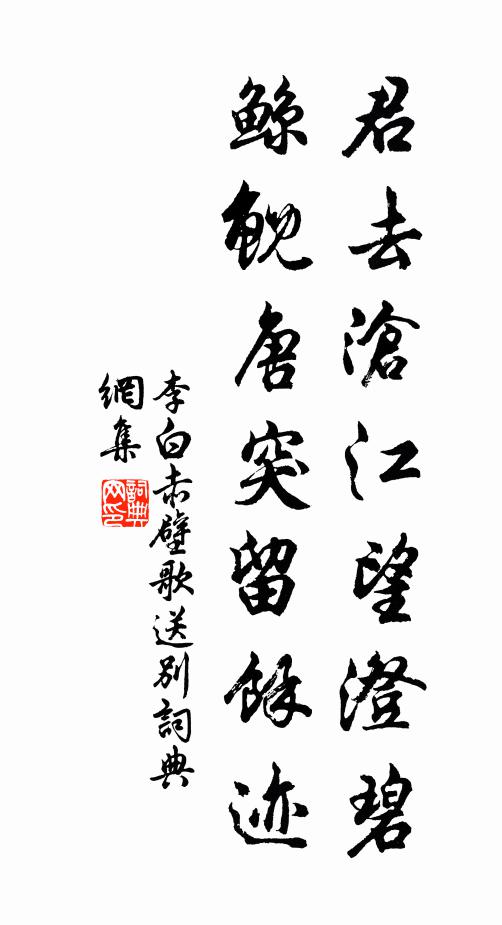 君去滄江望澄碧
鲸鲵唐突留餘迹
李白赤壁歌送別詞典
網集
詞典
网印